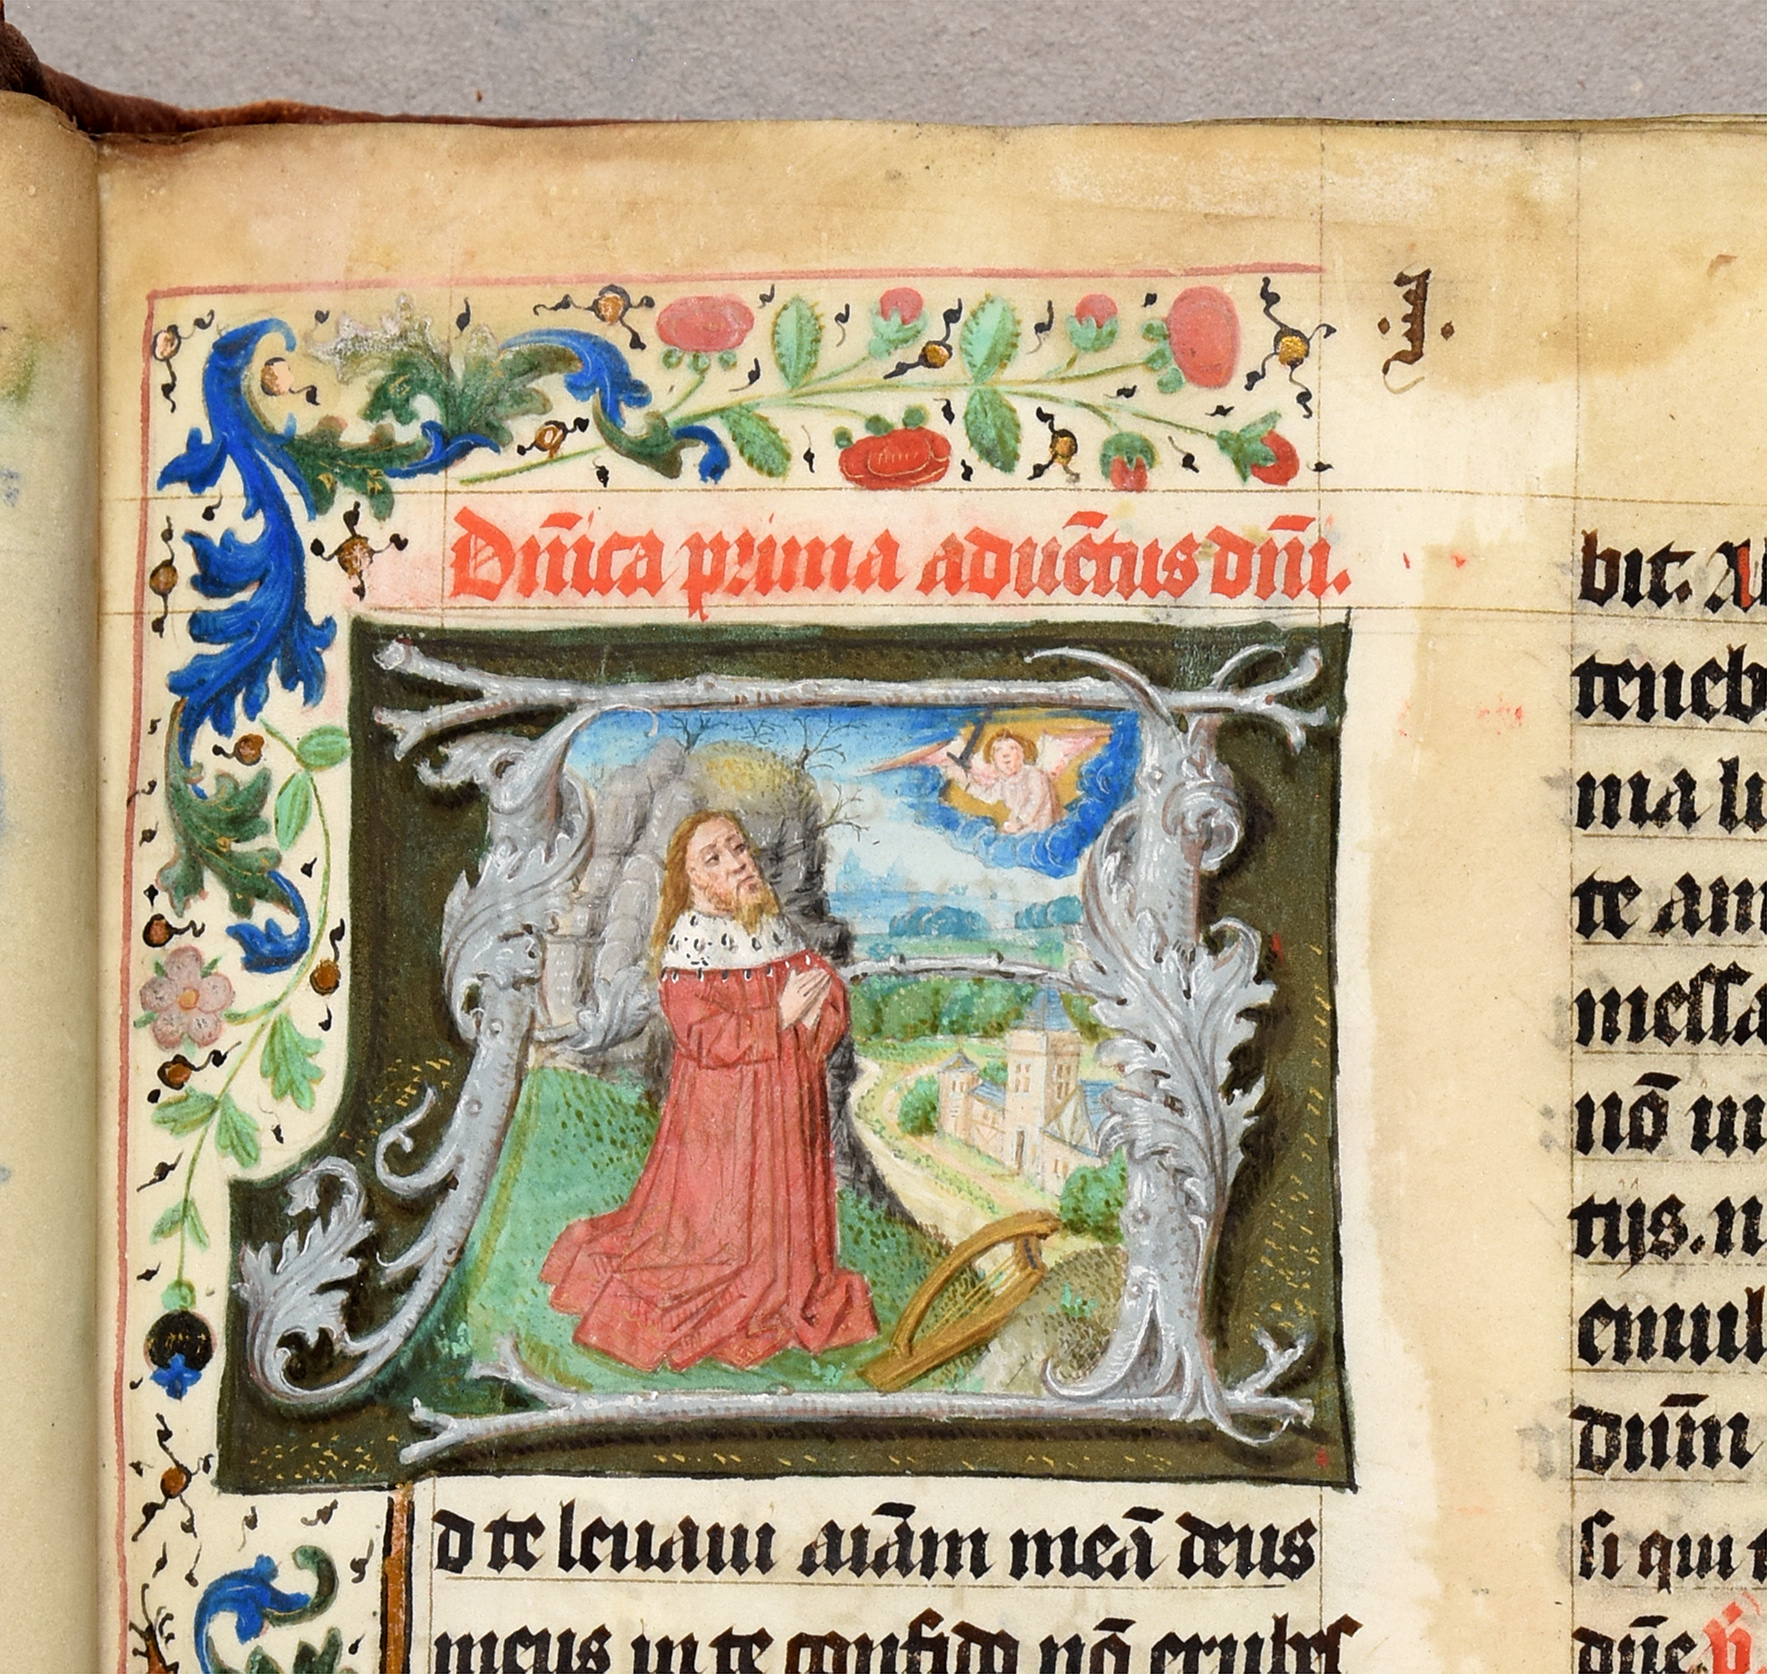 .j.
Dn̄ica prima aduētus dn̄i.
A
d te leuaui aīam meā deus
meus in te confido nō erubes
bit. Al
teneb
nia lu
te am
messa
nō in
tijs. n
emul
dnm̄
si qui
dn̄e